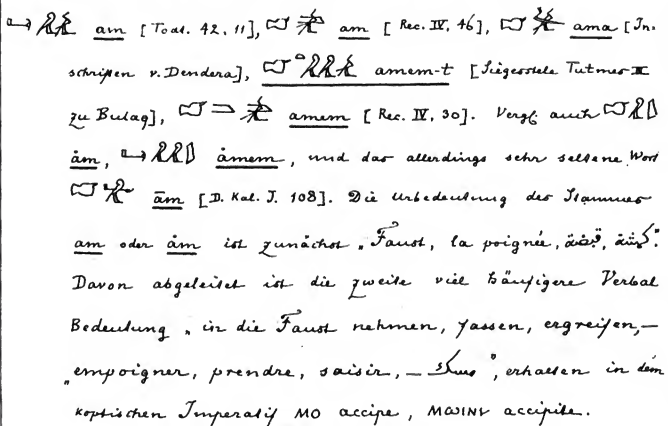 am [Todt. 42, 11], am [Rec. IV, 46], ama [In-
schriften v. Dendera], amem-t [Siegesstele Tutmes III
zu Bulaq], amem [Rec. IV, 30]. Vergl. auch
åm, åmem, und das allerdings sehr seltene Wort
ām [D. Kal. J. 108]. Die Urbedeutung des Stammes
am oder åm ist zunächst „Faust, la poignée, قبضة, كمشة“.
Davon abgeleitet ist die zweite viel häufigere Verbal
Bedeutung „in die Faust nehmen, fassen, ergreifen, –
„empoigner, prendre, saisir, – مسك“, erhalten in dem
koptischen Imperatif ⲙⲟ accipe, ⲙⲱⲓⲛⲓ accipite.